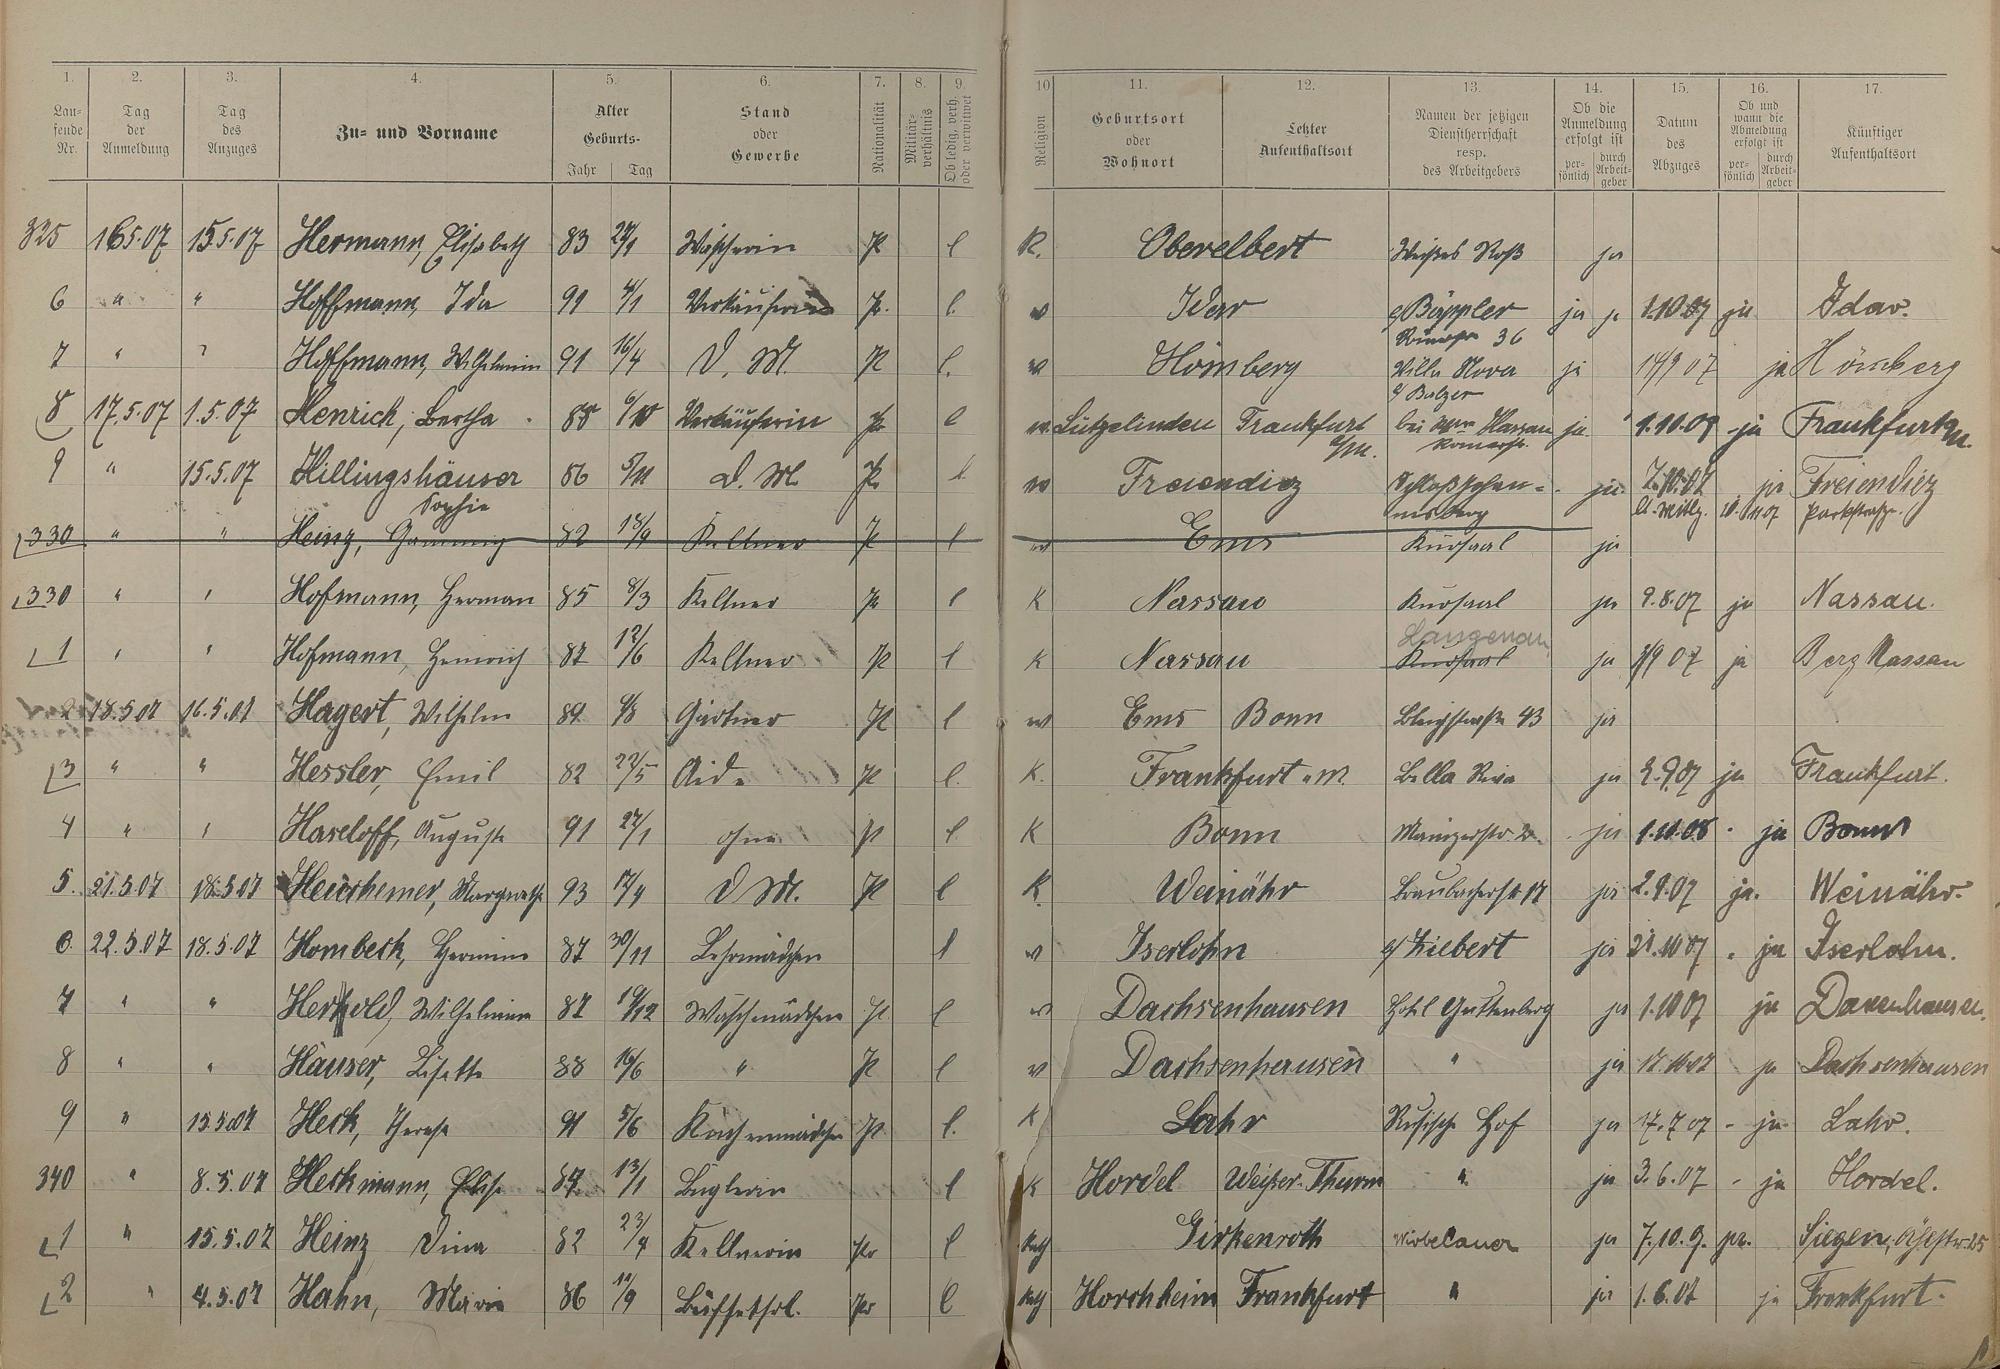 1. 2. 3. 4. 5. 6. 7. 8. 9. 10 11. 12. 13. 14. 15. 16. 17.
Lau-fende Nr. Tag der Anmeldung Tag des Anzuges Zu- und Vorname Alter Geburts- Jahr Tag Stand oder Gewerbe Nationalität Militär-verhältnis Ob ledig, verh. oder verwitwet Religion Geburtsort oder Wohnort Letzter Aufenthaltsort Namen der jetzigen Dienstherrschaft resp. des Arbeitgebers Ob die Anmeldung erfolgt ist per-sönlich durch Arbeit-geber Datum des Abzuges Ob und wann die Abmeldung erfolgt ist per-sönlich durch Arbeit-geber Künftiger Aufenthaltsort
325 16.5.07 15.5.07 Hermann, Elisabeth 83 Wäscherin P l K. Oberelbert Weißes Roß ja
6 " " Hoffmann, Ida 91 4/1 Verkäuferin P. l. Idar Bäppler 36 ja 1.10.07 ja Idar.
7 " " Hoffmann, Wilhelmin 91 16/4 D. M. P l. Hömberg Villa Nova Balzer ja 14/9 07 ja Hömberg
8 17.5.07 1.5.07 Henrich, Bertha Verkäuferin l Lützelinden Frankfurt a/M. bei Hassan ja 1.10.09 ja Frankfurt
9 " 15.5.07 Hillingshäuser Sophie 86 5/11 D. M. P. l Freiendiez ja 7.10.07 ja Freiendiez
330 " " Heinz, 82 18/9 Kellner P l Ems Kursaal ja
330 " " Hofmann, Herman 85 8/3 Kellner P l K Nassau Kursaal ja 9.8.07 ja Nassau.
1 " " Hofmann, Heinrich 87 12/6 Kellner P l K Nassau Langenau Kursaal ja 07 ja Berg Nassau
2 18.5.07 16.5.07 Hagert, Wilhelm 89 Gärtner P l Ems Bonn Bleichstraße 43 ja
3 " " Hessler, Emil 82 22/5 Aide P l. K. Frankfurt a M. Bella Riva ja 2.9.07 ja Frankfurt.
4 " " Haseloff, Auguste 91 27/1 ohne P l. K Bonn Mainzerstr. 2 ja 1.11.08 ja Bonn
5. 21.5.07 18.5.07 Margarethe 93 17/4 D M. P l K. Weinähr Braubacherstr 17 ja 2.9.07 ja. Weinähr.
6. 22.5.07 18.5.07 Hombeck, Hermine 87 30/11 Lehrmädchen l Iserlohn ja 21.10 07 ja Iserlohn.
7 " " Herhold, Wilhelmine 87 Waschmädchen P. l Dachsenhausen Hotel Guttenberg ja 1.10 07 ja Daxenhausen.
8 " " Häuser, Lisette 88 16/6 " P l Dachsenhausen " ja ja Dachsenhausen
9 " 15.5.07 Heck, Therese 91 5/6 Küchenmädchen P. l. K Lahr Rusische Hof ja 17.7 07 - ja Lahr.
340 " 8.5.07 Heckmann, Elise 87 13/1 Büglerin l K Hordel Weißer-Thurm " ja 3.6.07 - ja Hordel.
1 " 15.5.07 Heinz Dina 82 23/4 Kellnerin Pr l Kath Girkenroth Wirbelauer ja 7.10.9. Siegen, 25
2 " 4.5.07 Hahn, Marie 86 11/9 Büffetfrl. Pr l Kath Horchheim Frankfurt " ja 1.6.07 ja Frankfurt.